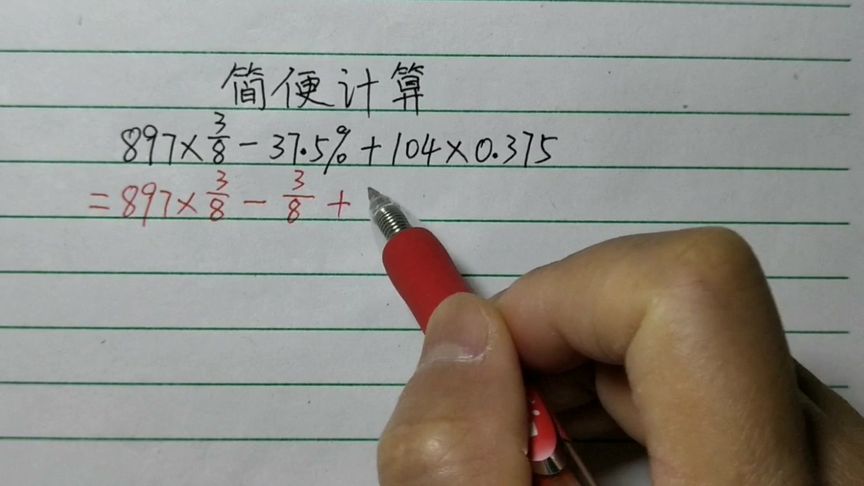 简便计算
897×3/8-37.5%+104×0.375
=897×3/8-3/8+